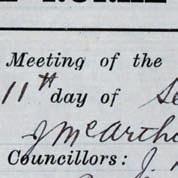 Meeting of the
11th day of Se
J McArth
Councillors: J.